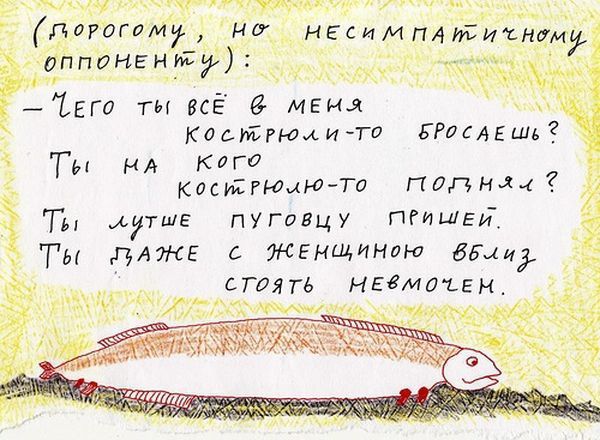 (дорогому, но несимпатичному
оппоненту):
— Чего ты всё в меня
кострюли-то бросаешь?
Ты на кого
кострюлю-то поднял?
Ты лутше пуговцу пришей.
Ты даже с женщиною вблиз
стоять невмочен.